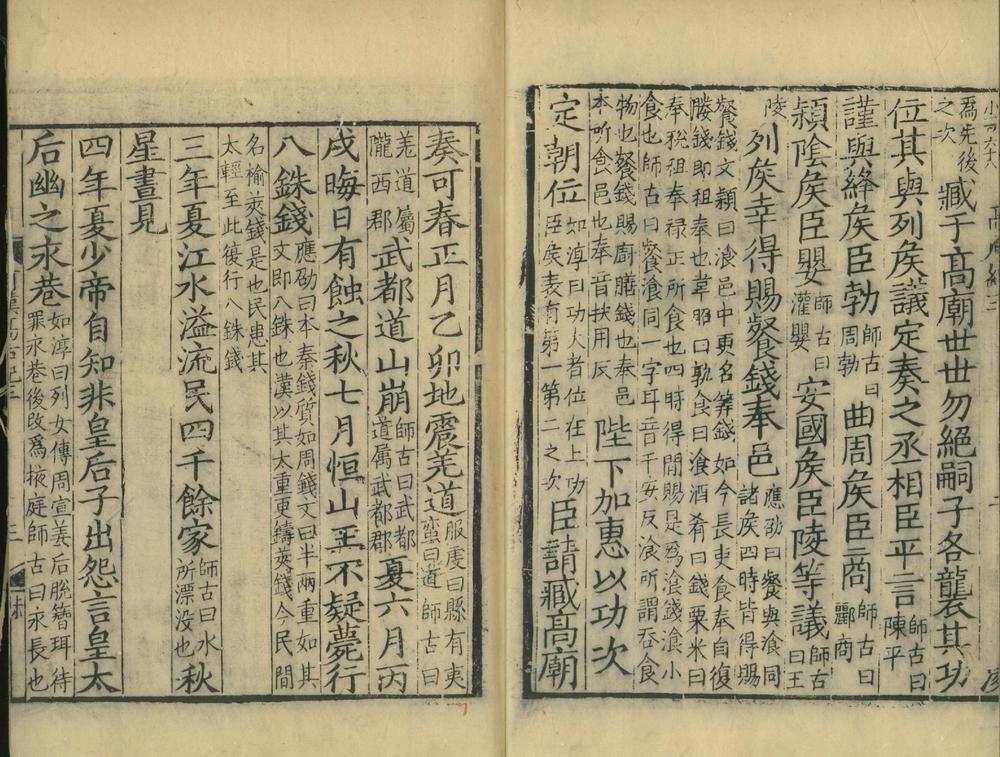 為先後
之次
臧于高廟世世勿絕嗣子各襲其功
位其與列侯議定奏之丞相臣平言師古曰
陳平
謹與絳侯臣勃師古曰
周勃
曲周侯臣商師古曰
酈商
潁陰侯臣嬰師古曰
灌嬰
安國侯臣陵等議師古
曰王
陵
列侯幸得賜餐錢奉邑應劭曰餐與飡同
諸侯四時皆得賜
餐錢文穎曰飡邑中更名筭錢如今長吏食奉自復
媵錢即租奉也韋昭曰孰食曰飡酒肴曰錢粟米曰
奉稅租奉祿正所食也四時得閒賜是為飡錢飡小
食也師古曰餐飡同一字耳音千安反飡所謂吞食
物也餐錢賜廚膳錢也奉邑
本所食邑也奉音扶用反
陛下加惠以功次
定朝位如淳曰功大者位在上功
臣侯表有第一第二之次
臣請臧高廟
奏可春正月乙卯地震羌道服虔曰縣有夷
蠻曰道師古曰
羌道屬
隴西郡
武都道山崩師古曰武都
道屬武都郡
夏六月丙
戌晦日有蝕之秋七月恒山王不疑薨行
八銖錢應劭曰本秦錢質如周錢文曰半兩重如其
文即八銖也漢以其太重更鑄莢錢今民閒
名榆莢錢是也民患其
太輕至此復行八銖錢
三年夏江水溢流民四千餘家師古曰水
所漂沒也
秋
星晝見
四年夏少帝自知非皇后子出怨言皇太
后幽之永巷如淳曰列女傳周宣姜后脫簪珥待
罪永巷後改為掖庭師古曰永長也